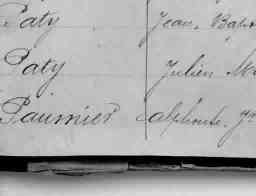 Paty Jean. Bapt
Paty Julien M
Paumier Alphonse.